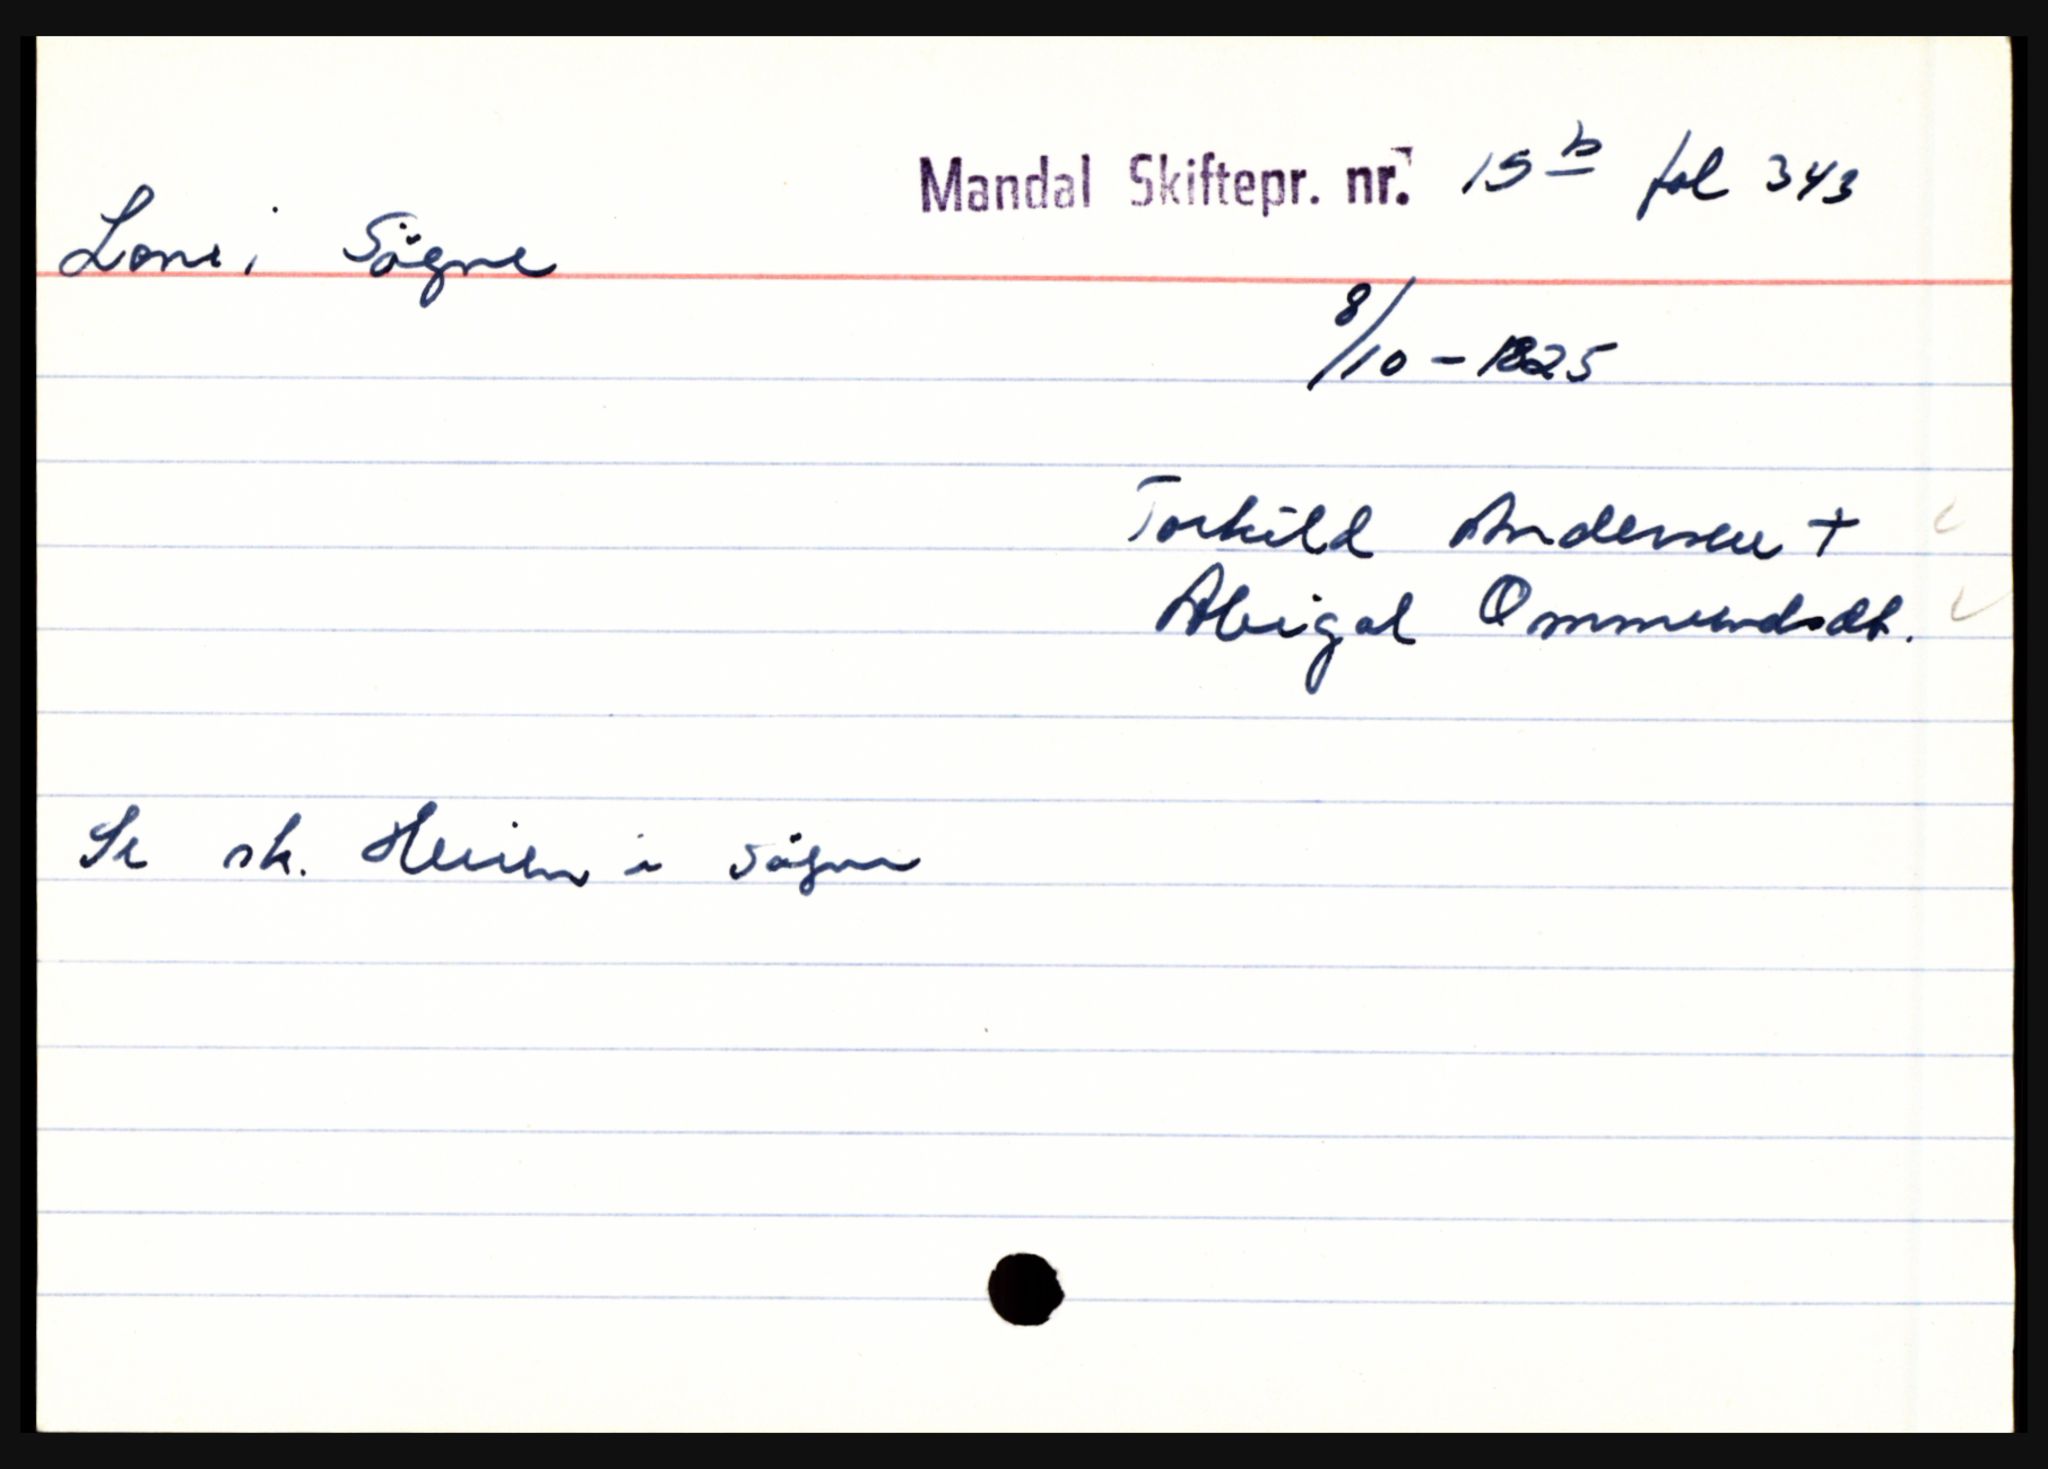 Mandal Skiftepr. nr. 15 b fol 343
Lone i Sögne
8/10 - 1825
Torkild Andersen +
Abigal Ommundsdt.
Se sk. Heien i Sögne